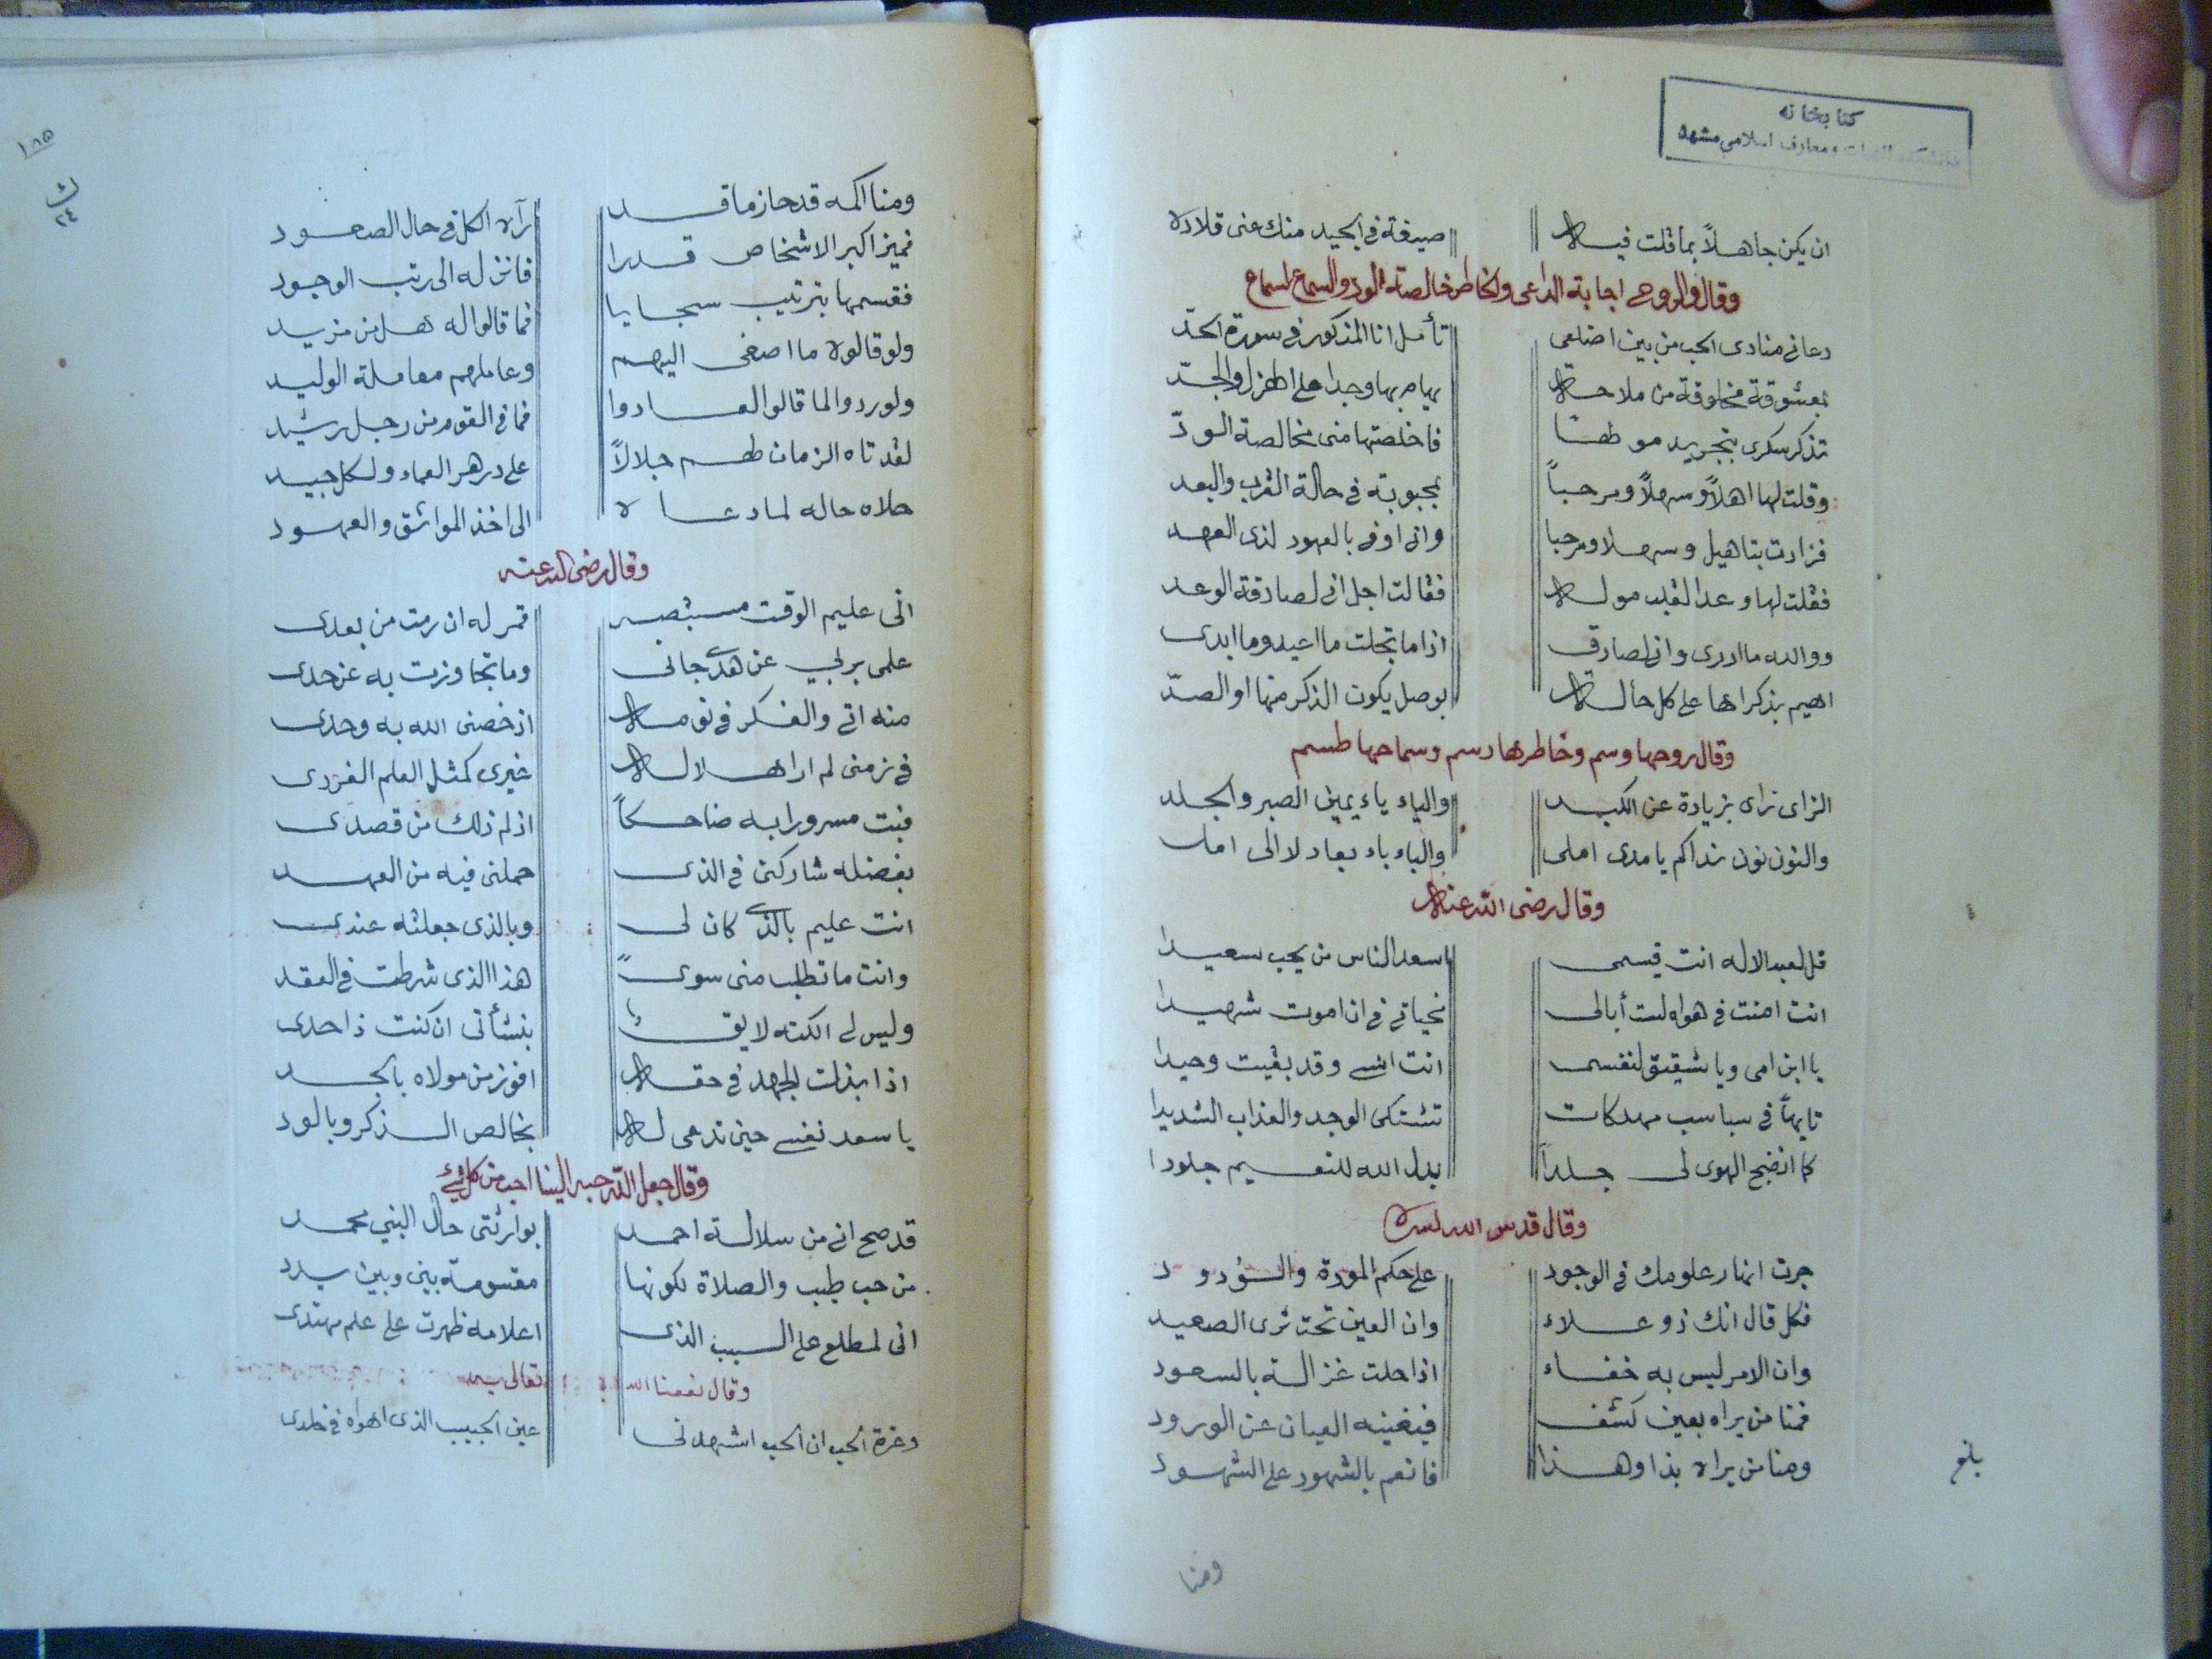 كتابخانه
معارف اسلامي مشهد
ان يكن جاهلاً بما قلت فيه صيغة في الجيد منك عنى قلاده
وقال والروح اجابة الداعي والخاطر خالصة الود والسماع لسماع
دعاني منادى الحب من بين اضلعى تأمل انا المذكور في سورة الحمد
بمعشوقة مخلوقة من ملاحة يهام بها وجدا على الهزل والجدّ
تذكر سكرى بتجريد موطئا فاخلصتها منى مخالصة الودّ
وقلت لها اهلاً وسهلاً ومرحباً بمحبوبة في حالة القرب والبعد
فزادت بتاهيل وسهلا ومرحبا وانى اوفى بالعهود لذى العهد
فقلت لها وعد القلب مولة فقالت اجل انى لصادقة الوعد
ووالله ما ادرى وانى لصادق اذا ما تجلت ما اعيد وما ابدى
اهيم بذكراها على كل حالة بوصل يكون الذكر منها او الصدّ
وقال روحها وسم وخاطرها رسم وسماحها طسم
الزاى زاى بزيادة عن الكبد والياء ياء يمين الصبر والجلد
والنون نون نداكم يامدى املى والباء باء بعاد لا الى امد
وقال رضى الله عنه
قل لعبد الاله انت قيسمى اسعد الناس من يحب سعيدا
انت امنت في هواه لست أبالى فحياتي في ان اموت شهيدا
يا ابن امى ويا شقيق لنفسى انت انسى وقد بقيت وحيدا
تايهاً في سباسب مهلكات تشتكى الوجد والعذاب الشديدا
كلما انضج الهوى لى جلداً بدل الله للنعيم جلودا
وقال قدس الله سره
جرت انهار علومك في الوجود على حكم المودة والودود
فكل قال انك ذو علاء وان العين تحت ثرى الصعيد
وان الامر ليس به خفاء اذا حلت غزالة بالسعود
فمنا من يراه بعين كشف فيغنيه العيان عن الورود
ومنا من يراه بذا وهذا فانعم بالشهود على الشهود
بلغ
ومنا
١٨٥
٢٤
ومنا اكمه قد حاز ما قد رآه الكل في حال الصعود
فميز اكبر الاشخاص قدرا فانزله الى رتب الوجود
فقسمها بترتيب سجايا فما قالوا له هل من مزيد
ولو قالوه ما اصغى اليهم وعاملهم معاملة الوليد
ولو ردوا لما قالوا لعادوا فما في القوم من رجل رشيد
لقد تاه الزمان طهم جلالاً على دهر العماء ولكل جيد
حلاه حاله لما دعاه الى اخذ المواثق والعهود
وقال رضى الله عنه
انى عليم الوقت مستبصر قمر له ان رمت من بعدى
علمى بربي عن هدى جانى وما تجاوزت به عن حدى
منه اتى والفكر في نومة اذ خصنى الله به وحدى
في زمنى لم ار اهلا له غيرى كمثل العلم الفردى
فبت مسرورا به ضاحكاً اذ لم ذلك من قصدى
بفضله شاركنى في الذى حملنى فيه من العهد
انت عليم بالذى كان لى وبالذى جعلته عندى
وانت ما تطلب منى سوى هذا الذى شرطت في العقد
وليس لى الكنه لايق بنشأتى ان كنت ذا حدى
اذا بذلت الجهد في حقه افوز من مولاه بالجد
يا سعد نفسى حين تدعى له بخالص الذكر وبالود
وقال جعل الله حبه الينا احب من كل شئ
قد صح انى من سلالة احمد بوارثتى حال النبي محمد
من حب طيب والصلاة لكونها مقسومة بينى وبين سيدى
انى لمطلع على السبب الذى اعلامه ظهرت على علم مهتدى
وقال نفعنا الله تعالى به
وعزة الحب ان الحب اشهدنى عين الحبيب الذى اهواه في خلدى